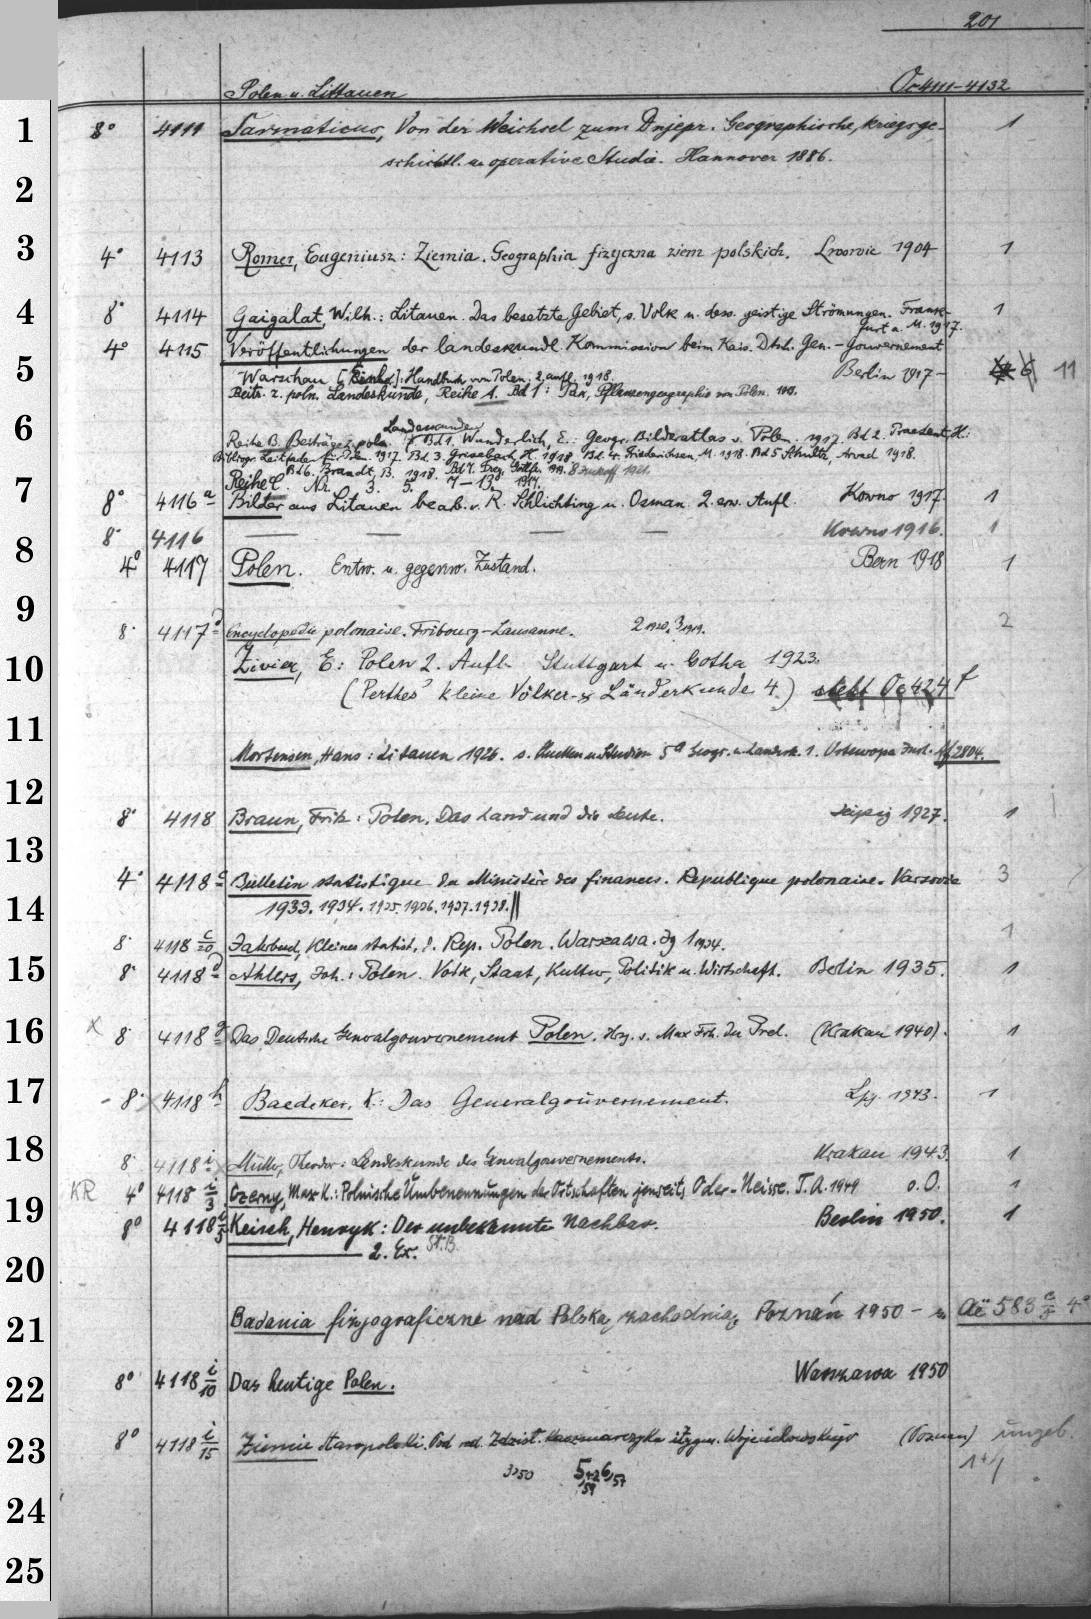 201
Polen u. Littauen Oc 4111-4132
1 8° 4111 Sarmaticus, Von der Weichsel zum Dnjepr. Geographische, kriegsge- 1
schichtl. u. operative Studie. Hannover 1886.
2
3 4° 4113 Romer, Eugeniusz: Ziemia. Geographia fizyczna ziem polskich. Lwowie 1904 1
4 8° 4114 Gaigalat, Wilh.: Litauen. Das besetzte Gebiet, s. Volk u. dess. geistige Strömungen. Frank- 1
furt a. M. 1917.
4° 4115 Veröffentlichungen der landeskundl. Kommission beim Kais. Dtsch. Gen.-Gouvernement
5 Warschau Handbuch von Polen. 2. Aufl. 1918. Berlin 1917- 6 11
Beitr. z. poln. Landeskunde, Reihe A. Bd 1: Pax, Pflanzengeographie von Polen.
6 Landeskunde
Reihe B. Beiträge z. poln. Bd 1. Wunderlich, E.: Geogr. Bilderatlas v. Polen. 1917. Bd 2. Praesent, H.:
Leitfaden für Polen 1917. Bd. 3. Grisebach, H. 1918. Bd. 4. Friederichsen, M. 1918. Bd 5 Schultz, Arved 1918.
Bd 6. Brandt, B. 1918. Bd 7.
7 Reihe C. Nr. 3. 5. 7-13.
8° 4116 a Bilder aus Litauen bearb. v. R. Schlichting u. Osman. 2. erw. Aufl. Kowno 1917. 1
8 8° 4116 — — — — Kowno 1916. 1
4° 4117 Polen. Entw. u. gegenw. Zustand. Bern 1918 1
9 8° 4117 Encyclopédie polonaise. Fribourg-Lausanne. 2 1920. 3 1919. 2
10 Zivier, E: Polen 2. Aufl. Stuttgart u. Gotha 1923.
(Perthes' kleine Völker- & Länderkunde 4.) steht Oc 424 f
11 Mortensen, Hans: Litauen 1926. s. Quellen u. Studien 5 Geogr. u. Landesk. 1. Osteuropa Inst. 2804.
12 8° 4118 Braun, Fritz: Polen. Das Land und die Leute. Leipzig 1927. 1
13
4° 4118 Bulletin statistique du Ministère des finances. Republique polonaise. Varsovie 3
14 1933. 1934. 1935. 1936. 1937. 1938.
8° 4118 c/20 Jahrbuch, Kleines statist., d. Rep. Polen. Warszawa. Jg 1934. 1
15 8° 4118 Ahlers, Joh.: Polen. Volk, Staat, Kultur, Politik u. Wirtschaft. Berlin 1935. 1
16 x 8° 4118 g Das Deutsche Generalgouvernement Polen. Hrg. v. Max Frh. du Prel. (Krakau 1940). 1
17 - 8° 4118 h Baedeker, K.: Das Generalgouvernement. Lpg. 1943. 1
18 8° 4118 i Müller, Theodor: Landeskunde des Generalgouvernements. Krakau 1943. 1
KR 4° 4118 i/3 Czerny, Max K.: Polnische Umbenennungen der Ortschaften jenseits Oder-Neisse. T. A. 1949 o. O. 1
19 8° 4118 i/5 Keisch, Henryk: Der unbekannte Nachbar. Berlin 1950. 1
2. Ex. St.B.
20
21 Badania fizjograficzne nad Polską zachodnią. Poznań 1950 - Aë 583 4°
22 8° 4118 i/10 Das heutige Polen. Warszawa 1950
23 8° 4118 i/15 Ziemie Staropolski. Pod red. Zdzisł. Kaczmarczyka i Zygm. Wojciechowskiego (Poznań) ungeb.
5 6 57
1+1
24
25